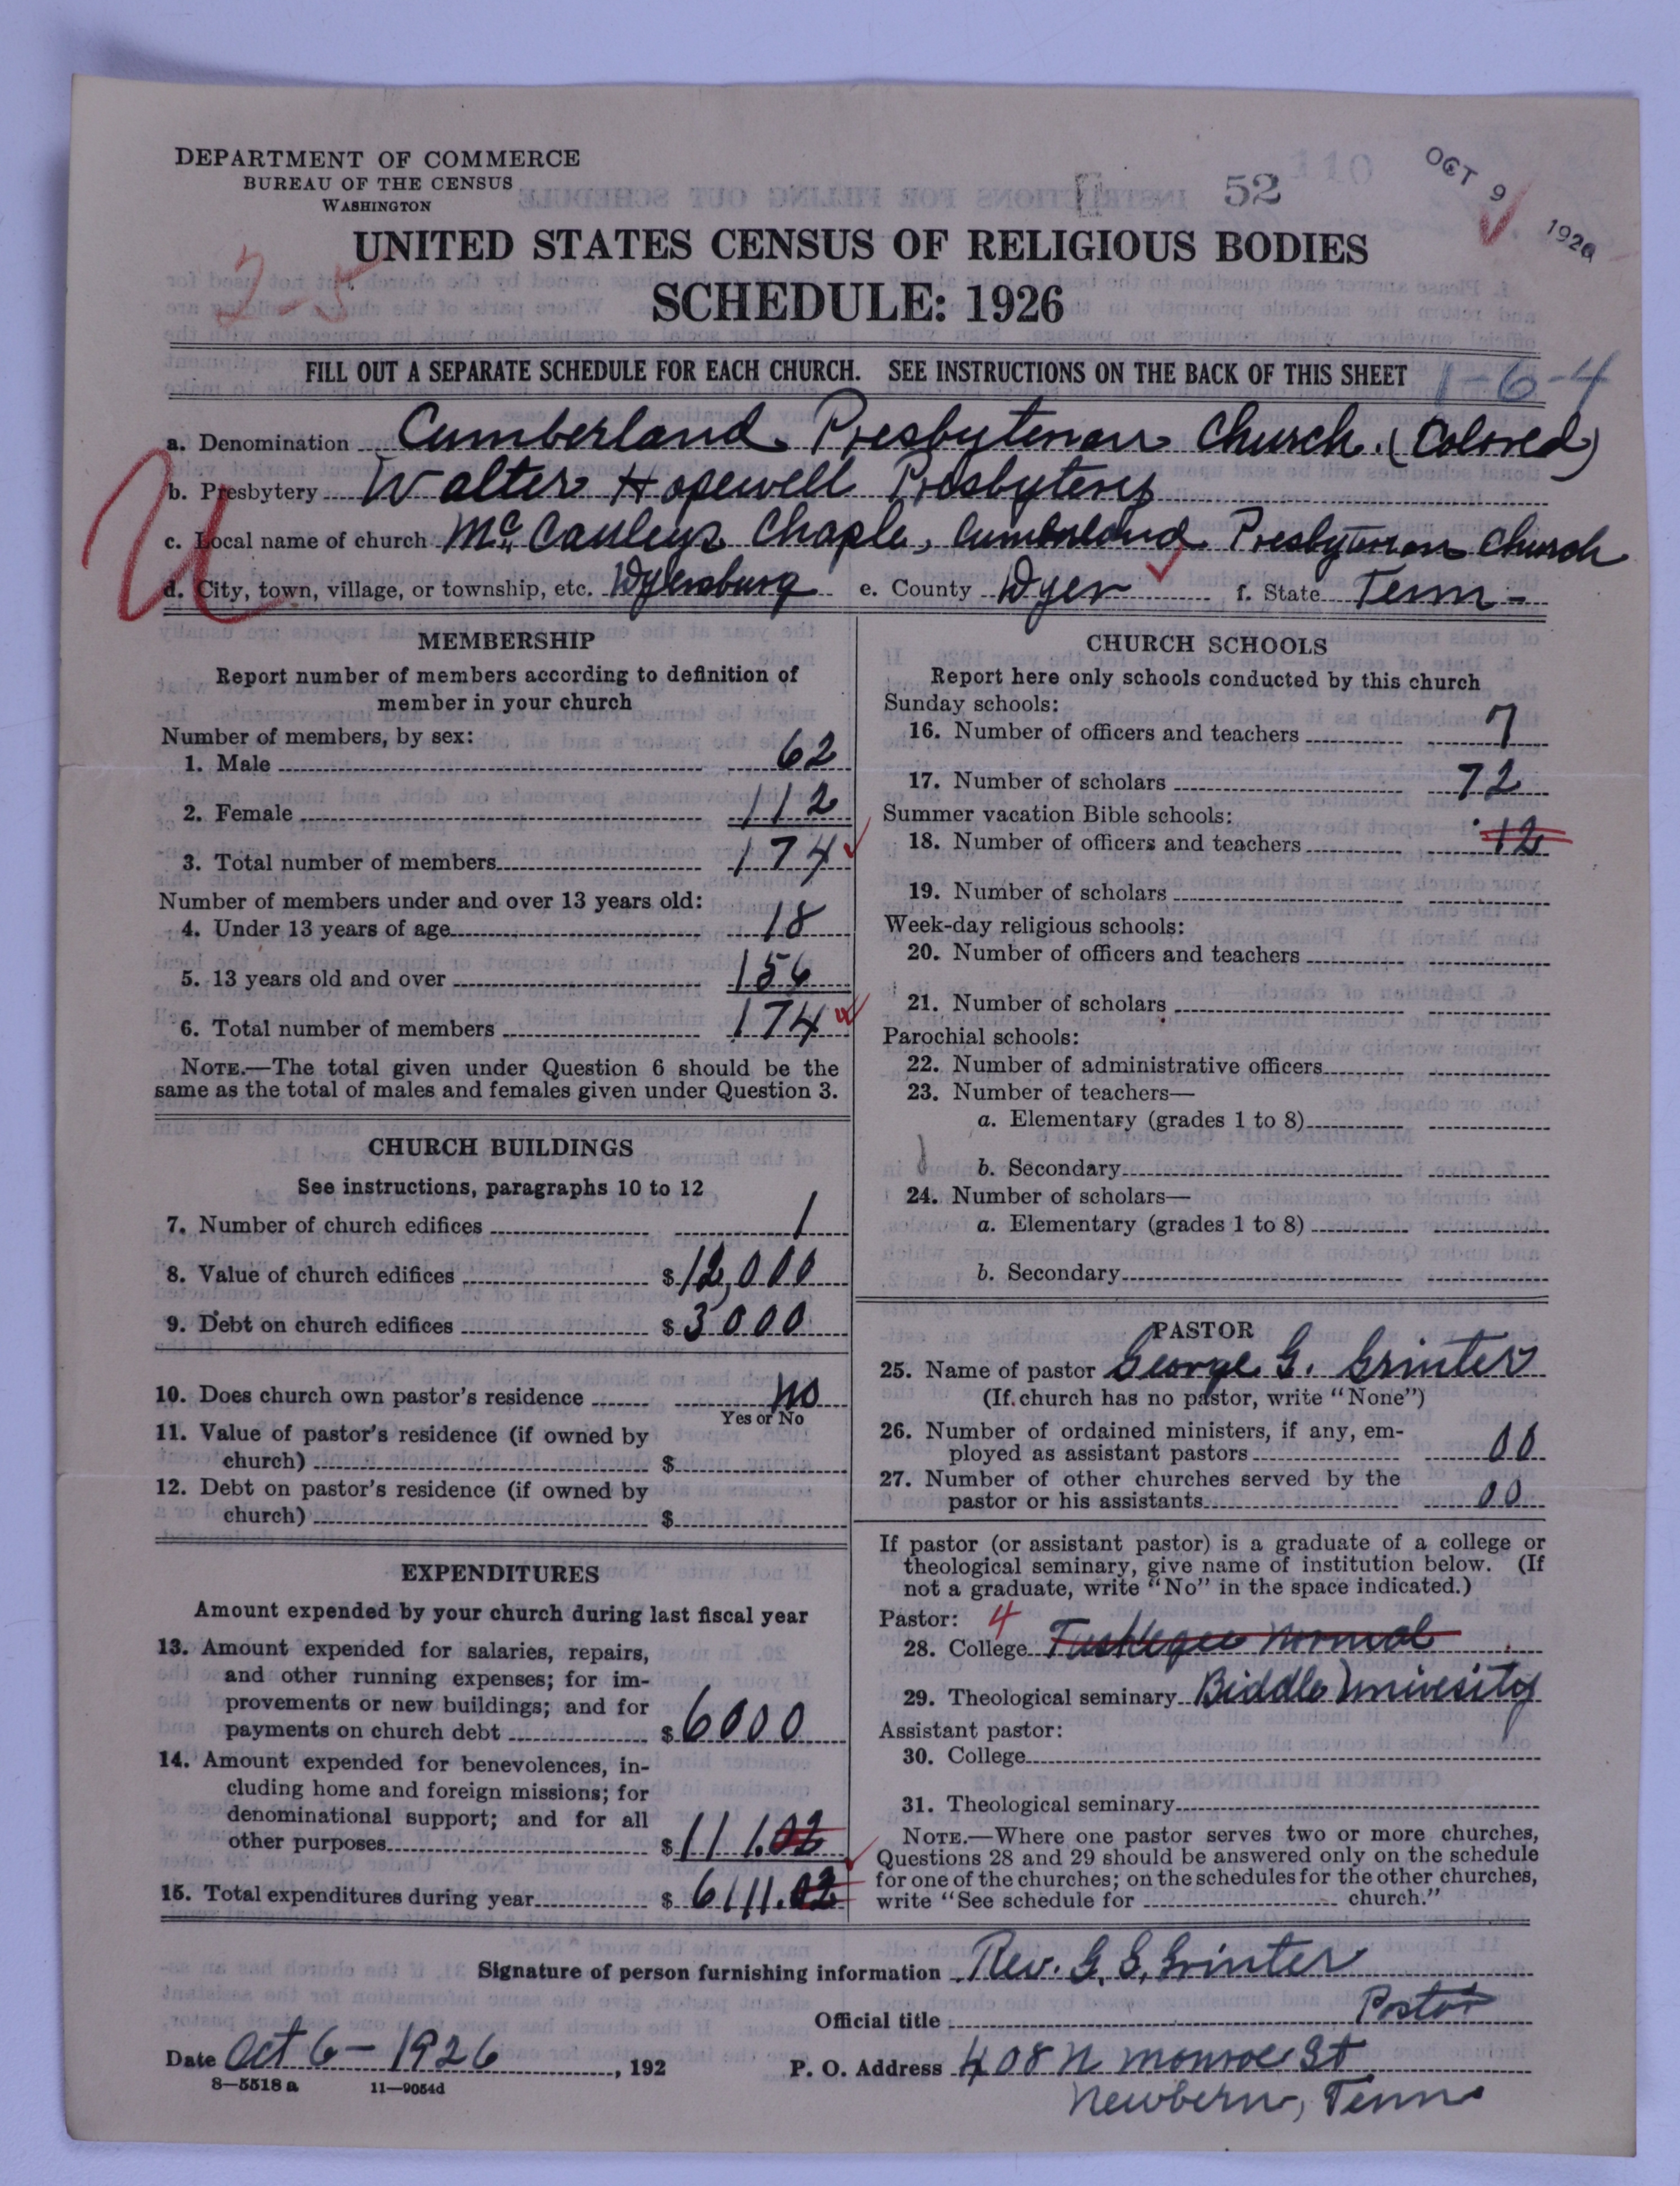 DEPARTMENT OF COMMERCE
BUREAU OF THE CENSUS
WASHINGTON
52
OCT 9 1926
2-5
UNITED STATES CENSUS OF RELIGIOUS BODIES
SCHEDULE: 1926
FILL OUT A SEPARATE SCHEDULE FOR EACH CHURCH. SEE INSTRUCTIONS ON THE BACK OF THIS SHEET
1-6-4
a. Denomination Cumberland Presbyterian Church. (Colored)
b. Presbytery Walter Hopewell Presbytery
c. Local name of church McCauleys Chaple, Cumberland Presbyterian Church
d. City, town, village, or township, etc. Dyersburg e. County Dyer f. State Tenn-
U
MEMBERSHIP
Report number of members according to definition of
member in your church
Number of members, by sex:
1. Male 62
2. Female 112
3. Total number of members 174
Number of members under and over 13 years old:
4. Under 13 years of age 18
5. 13 years old and over 156
6. Total number of members 174
NOTE.—The total given under Question 6 should be the
same as the total of males and females given under Question 3.
CHURCH BUILDINGS
See instructions, paragraphs 10 to 12
7. Number of church edifices 1
8. Value of church edifices $12,000
9. Debt on church edifices $3000
10. Does church own pastor's residence no
Yes or No
11. Value of pastor's residence (if owned by
church) $
12. Debt on pastor's residence (if owned by
church) $
EXPENDITURES
Amount expended by your church during last fiscal year
13. Amount expended for salaries, repairs,
and other running expenses; for im-
provements or new buildings; and for
payments on church debt $6000
14. Amount expended for benevolences, in-
cluding home and foreign missions; for
denominational support; and for all
other purposes $111.02
15. Total expenditures during year $6111.02
CHURCH SCHOOLS
Report here only schools conducted by this church
Sunday schools:
16. Number of officers and teachers 7
17. Number of scholars 72
Summer vacation Bible schools:
18. Number of officers and teachers 12
19. Number of scholars
Week-day religious schools:
20. Number of officers and teachers
21. Number of scholars
Parochial schools:
22. Number of administrative officers
23. Number of teachers—
a. Elementary (grades 1 to 8)
b. Secondary
24. Number of scholars—
a. Elementary (grades 1 to 8)
b. Secondary
PASTOR
25. Name of pastor George G. Grinter
(If church has no pastor, write "None")
26. Number of ordained ministers, if any, em-
ployed as assistant pastors 00
27. Number of other churches served by the
pastor or his assistants 00
If pastor (or assistant pastor) is a graduate of a college or
theological seminary, give name of institution below. (If
not a graduate, write "No" in the space indicated.)
Pastor: 4
28. College Tuskegee Normal
29. Theological seminary Biddle Univesity
Assistant pastor:
30. College
31. Theological seminary
NOTE.—Where one pastor serves two or more churches,
Questions 28 and 29 should be answered only on the schedule
for one of the churches; on the schedules for the other churches,
write "See schedule for church."
Signature of person furnishing information Rev. G. G. Grinter
Official title Pastor
Date Oct 6-1926, 192
P. O. Address 408 N Monroe St
Newbern, Tenn
8—5518 a 11—9054d